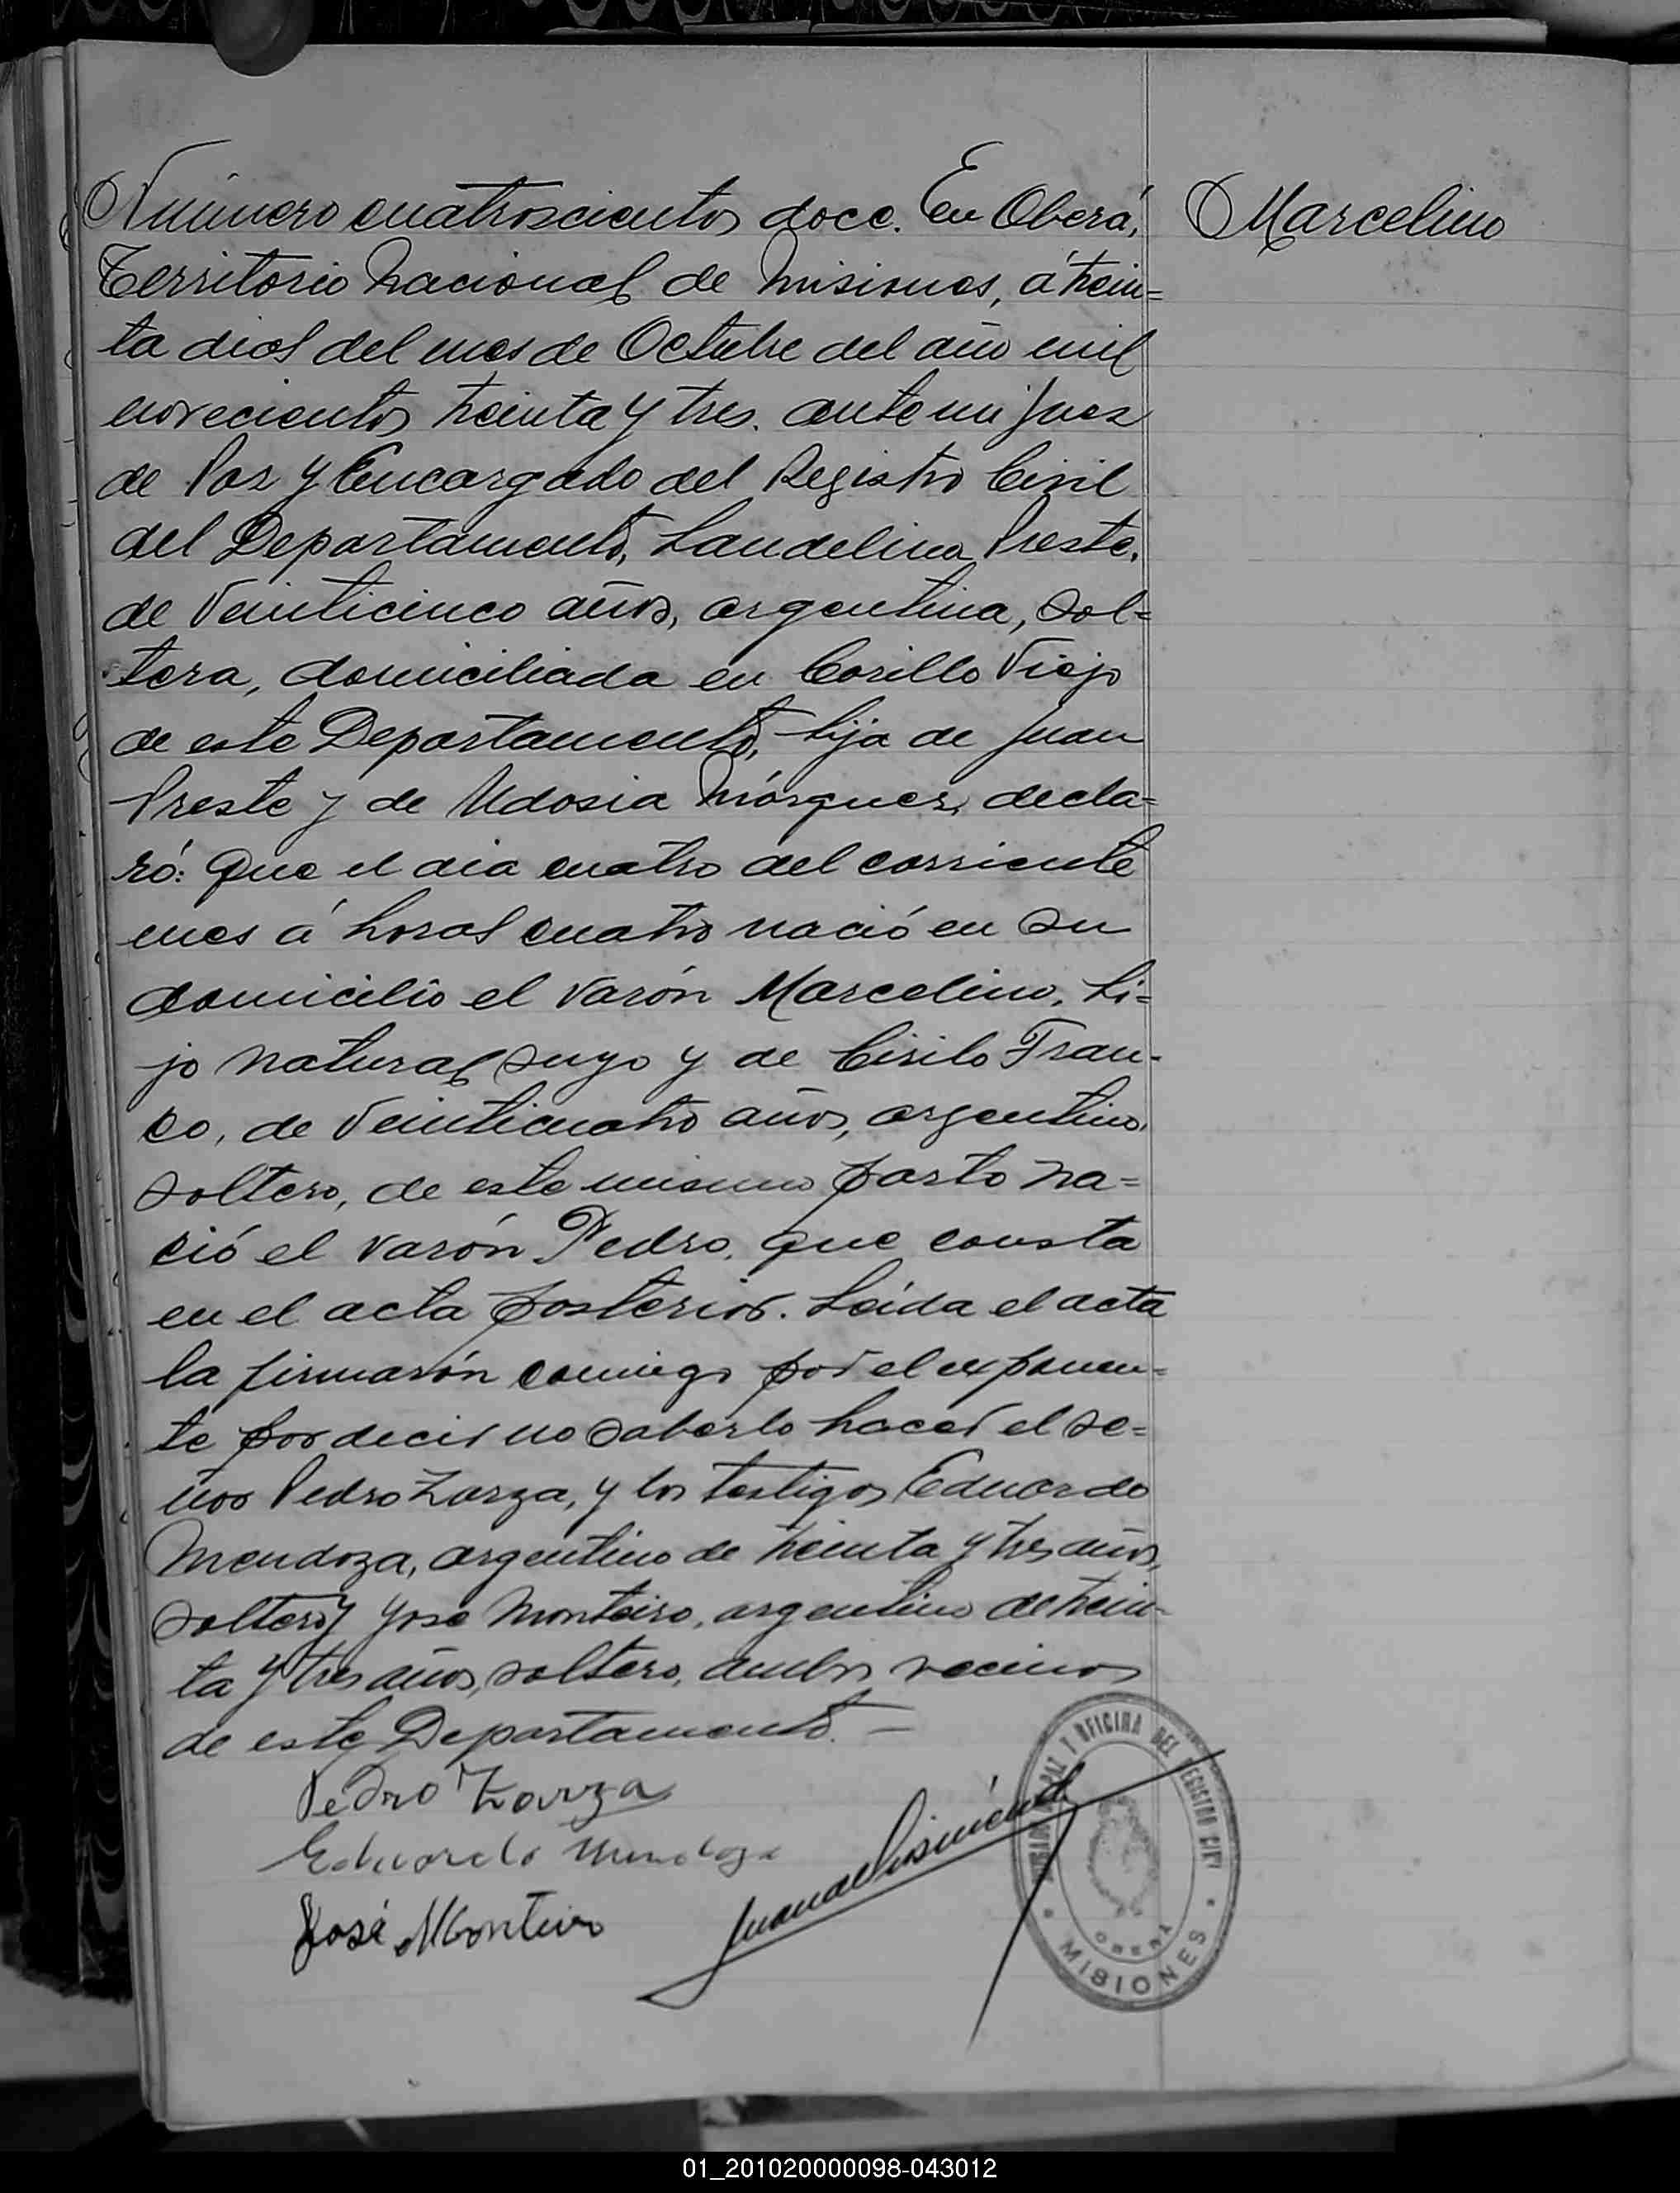 Número cuatroscientos doce. En Oberá,
Marcelino
Territorio Nacional de Misiones, á trein=
ta dias del mes de Octubre del año mil
novecientos treinta y tres. ante mi Juez
de Paz y Encargado del Registro Civil
del Departamento, Laudelina Preste,
de veinticinco años, argentina, sol=
tera, domiciliada en Cerillo Viejo
de este Departamento, hija de Juan
Preste y de Udosia Márquez, decla=
ró: Que el dia cuatro del corriente
mes á horas cuatro nació en su
domicilio el varón Marcelino, hi=
jo natural suyo y de Cirilo Fran-
co, de veinticuatro años, argentino,
soltero, de este mismo parto na=
ció el varón Pedro, que consta
en el acta posterior. Leida el acta
la firmarón conmigo por el exponen=
te por decir no saberlo hacer el se=
ñor Pedro Zarza, y los testigos Eduardo
Mendoza, argentino de treinta y tres años,
soltero y José Monteiro, argentino de trein-
ta y tres años, soltero, ambos vecinos
de este Departamento. —
Pedro Zarza
Eduardo Mendoza
José Monteiro
PAZ Y OFICINA DEL REGISTRO CIVIL
OBERÁ
MISIONES
01_201020000098-043012